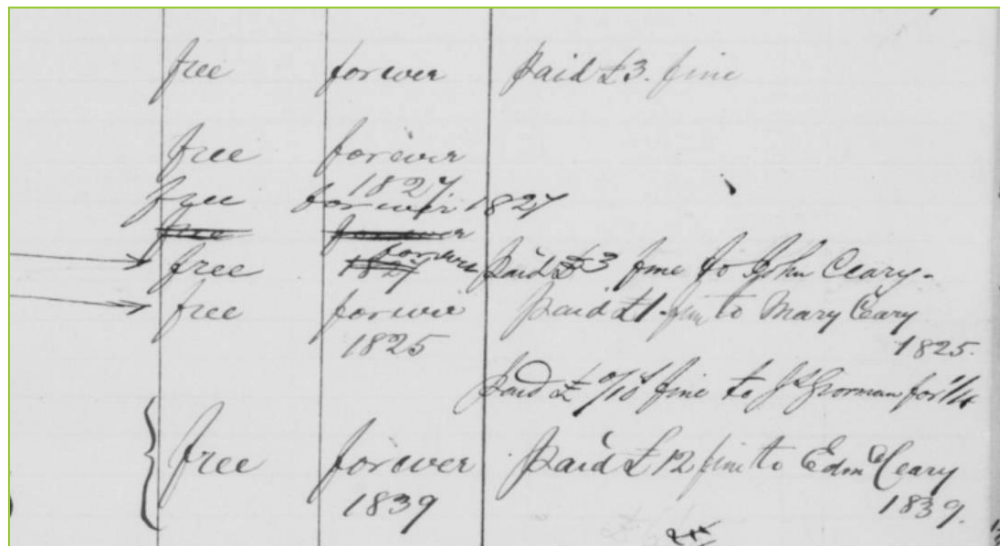 free forever paid £3. fine
free forever
1827
free forever 1827
free forever
free 1827 forever paid £3 fine to John Ceary.
free forever paid £1. fine to Mary Ceary
1825 1825.
paid £ fine to Gorman for 1/4
free forever paid £12 fine to Edmd Ceary
1839 1839.